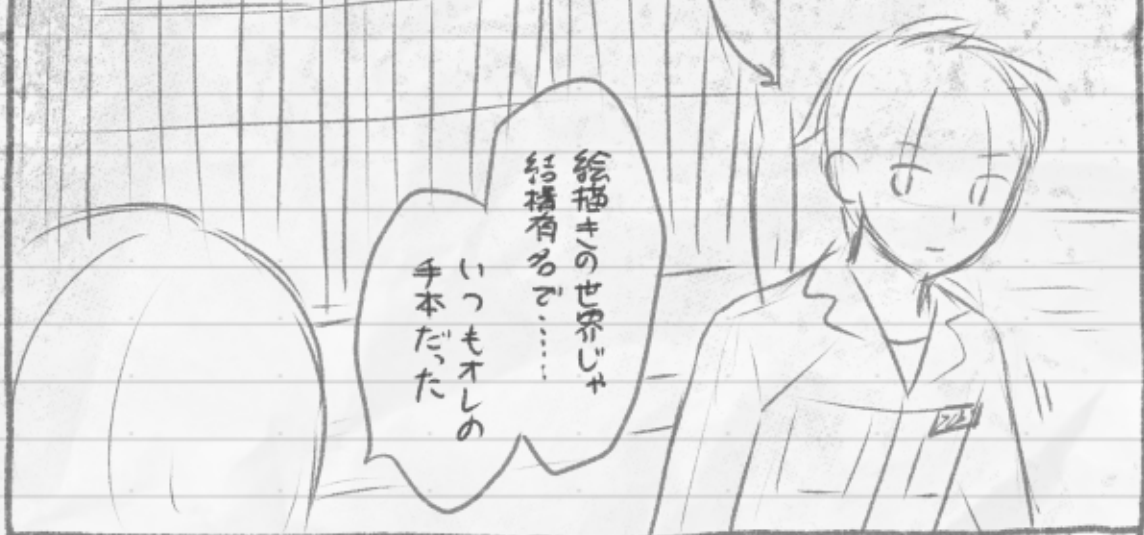 絵描きの世界じゃ
結構有名で……
いつもオレの
手本だった